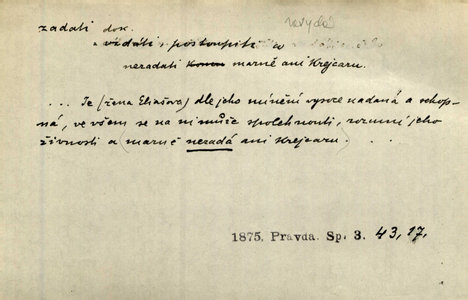 nevydá
zadati dok.
vzdáti, postoupiti
nezadati marně ani Krejcaru.
... Je (žena Eliášova) dle jeho mínění vysoce nadaná a schop-
ná, ve všem se na ni může spolehnouti, rozumí jeho
živnosti a (marně nezadá ani krejcaru.) . . .
1875. Pravda. Sp. 3. 43, 17.